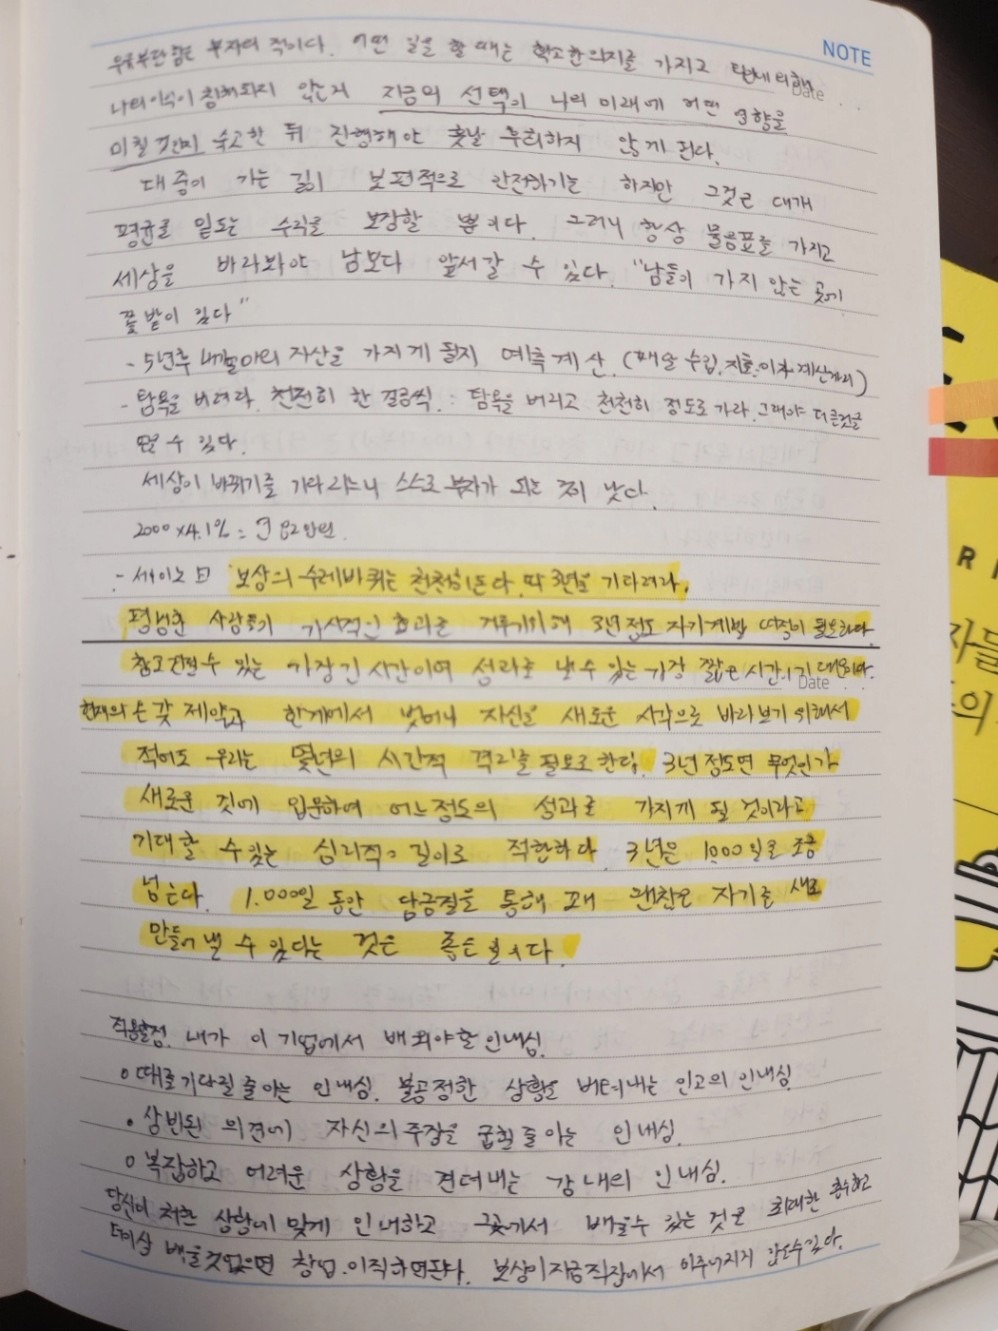 NOTE
우유부단함은 부자의 적이다. 어떤 일을 할 때는 확고한 의지를 가지고
Date
나의 이익이 침해되지 않는지 지금의 선택이 나의 미래에 어떤 영향을
미칠 것인지 숙고한 뒤 진행해야 훗날 후회하지 않게 된다.
대중이 가는 길이 보편적으로 안전하기는 하지만 그것은 대개
평균을 밑도는 수익을 보장할 뿐이다. 그러니 항상 물음표를 가지고
세상을 바라봐야 남보다 앞서갈 수 있다. "남들이 가지 않는 곳에
꽃밭이 있다"
- 5년후 내가 자산을 가지게 될지 예측계산. (매달 수입, 지출, 이자 계산까지)
- 탐욕을 버려라. 천천히 한 걸음씩. : 탐욕을 버리고 천천히 정도로 가라. 그래야 더 큰것을
얻을 수 있다.
세상이 바뀌기를 기다리느니 스스로 부자가 되는 것이 낫다.
2000 x 4.1% = 82만원.
- 세이노 보상의 수레바퀴는 천천히 돈다. 딱 3년을 기다려라.
평범한 사람들이 가시적인 효과를 거두기위해 3년 정도 자기계발 여정이 필요하다.
참고 견딜 수 있는 가장 긴 시간이며 성과를 낼 수 있는 가장 짧은 시간이기 때문이다.
Date
현재의 온갖 제약과 한계에서 벗어나 자신을 새로운 시각으로 바라보기 위해서
적어도 우리는 몇년의 시간적 격리를 필요로 한다. 3년 정도면 무엇인가
새로운 것에 입문하여 어느정도의 성과를 가지게 될 것이라고
기대할 수 있는 심리적인 길이로 적합하다. 3년은 1000일을 조금
넘는다. 1.000일 동안 담금질을 통해 꽤 괜찮은 자기를 새로
만들어 낼 수 있다는 것은 좋은 일이다.
적용할점. 내가 이 기업에서 배워야할 인내심.
○ 때를 기다릴 줄 아는 인내심. 불공정한 상황을 버텨내는 인고의 인내심
• 상반된 의견에 자신의 주장을 굽힐 줄 아는 인내심.
○ 복잡하고 어려운 상황을 견뎌내는 강인한 인내심.
당신이 처한 상황에 맞게 인내하고 그곳에서 배울수 있는 것은 최대한 흡수하고
더이상 배울것없으면 창업. 이직하면된다. 보상이 지금 직장에서 이루어지지 않을수 있다.